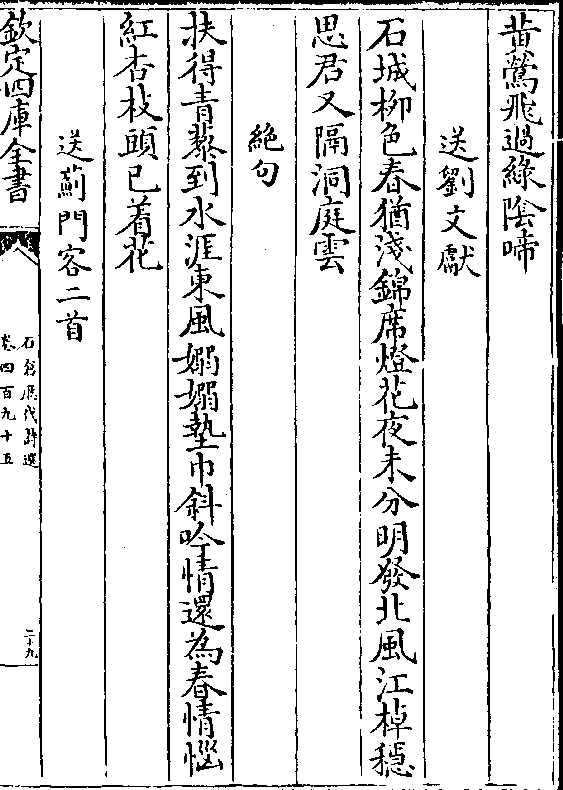 黄鶯飛過綠陰啼
送劉文獻
石城柳色春猶淺錦席燈花夜未分明發北風江棹穩
思君又隔洞庭雲
絕句
扶得青藜到水涯東風嫋嫋墊巾斜吟情還為春情惱
紅杏枝頭已着花
送薊門客二首
欽定四庫全書
石倉歷代詩選
卷四百九十五
二十九